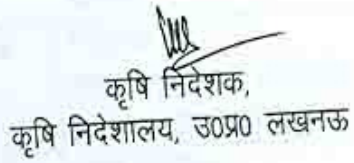 कृषि निदेशक,
कृषि निदेशालय, उ०प्र० लखनऊ